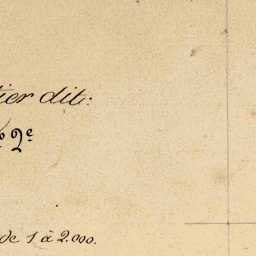 ier dit:
2e
de 1 à 2.000.